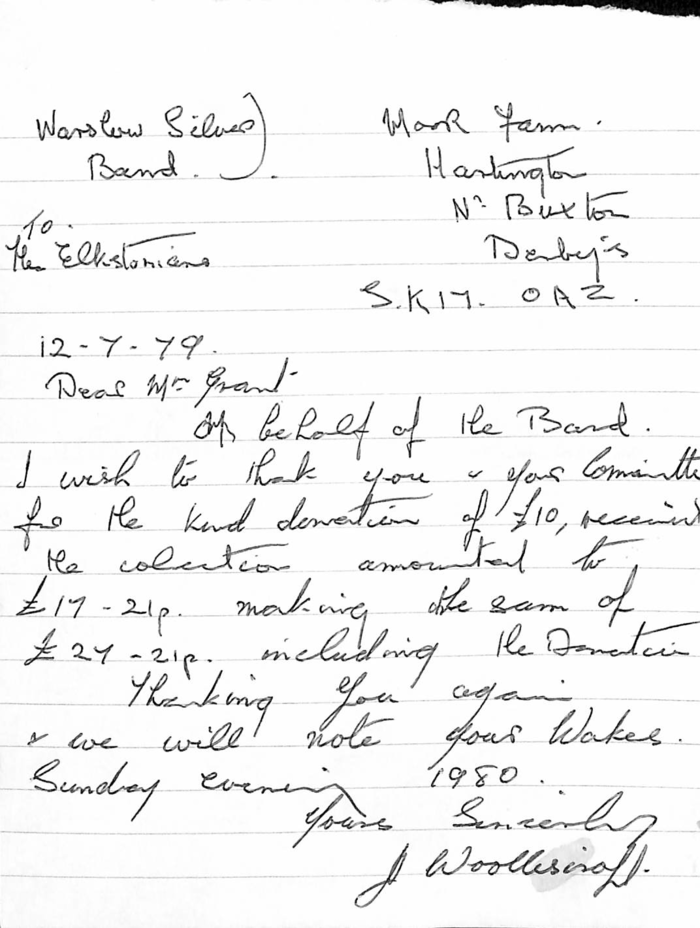 Warslow Silver
Band.
Moor Farm.
Hartington
Nr Buxton
Derby's
S.K17. 0AZ.
To.
The Elkstonians
12-7-79.
Dear Mr Grant
On behalf of the Band.
I wish to thank you & your Committe
for the kind donation of £10, received
the collection amounted to
£17-21p. making the sum of
£27-21p. including the Donation
Thanking you again
& we will note your Wakes.
Sunday evening 1980.
Yours Sincerely
J Woolliscroft.